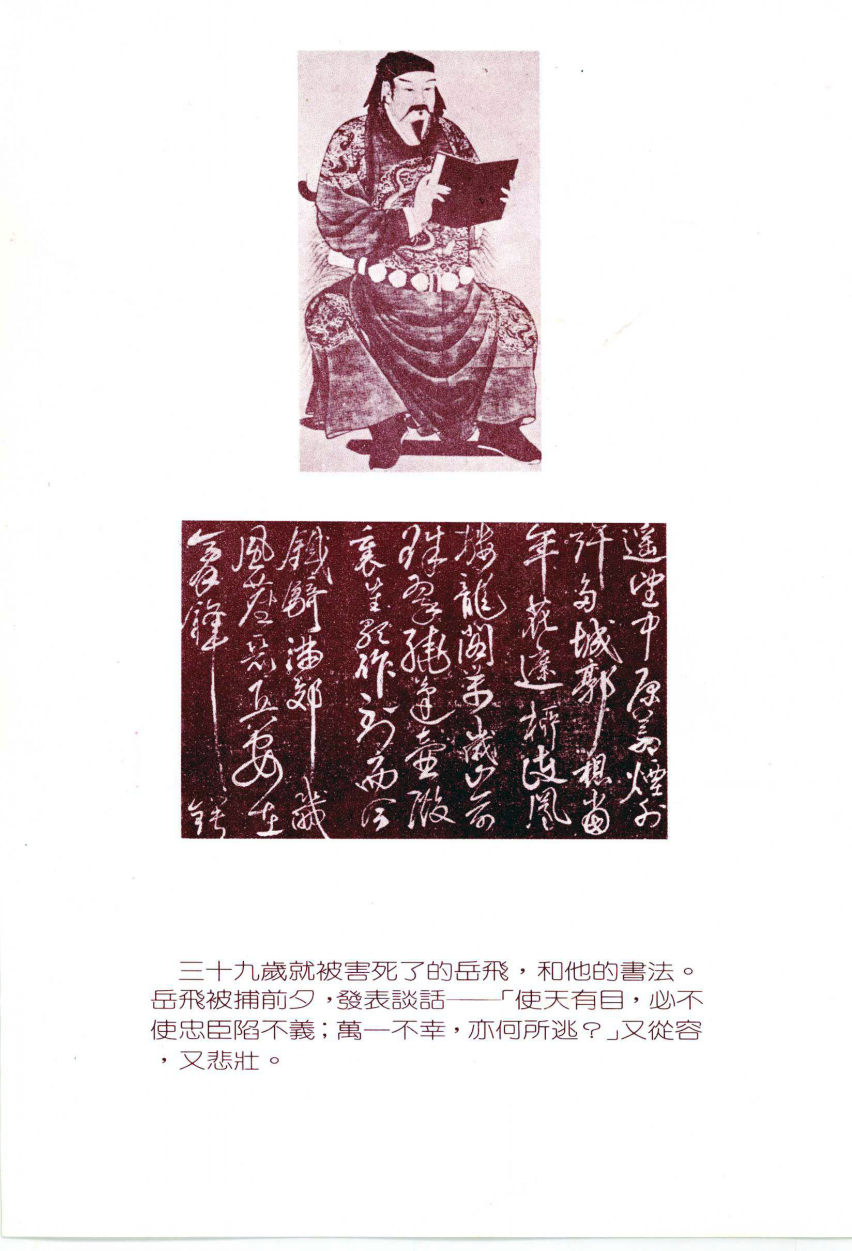 遙望中原荒煙外
許多城郭想當
年花遮柳護鳳
樓龍閣萬歲山前
珠翠繞蓬壺殿
裏笙歌作到而今
鐵騎滿郊畿
風塵惡兵安在
膏鋒鍔
三十九歲就被害死了的岳飛，和他的書法。
岳飛被捕前夕，發表談話——「使天有目，必不
使忠臣陷不義；萬一不幸，亦何所逃？」又從容
，又悲壯。